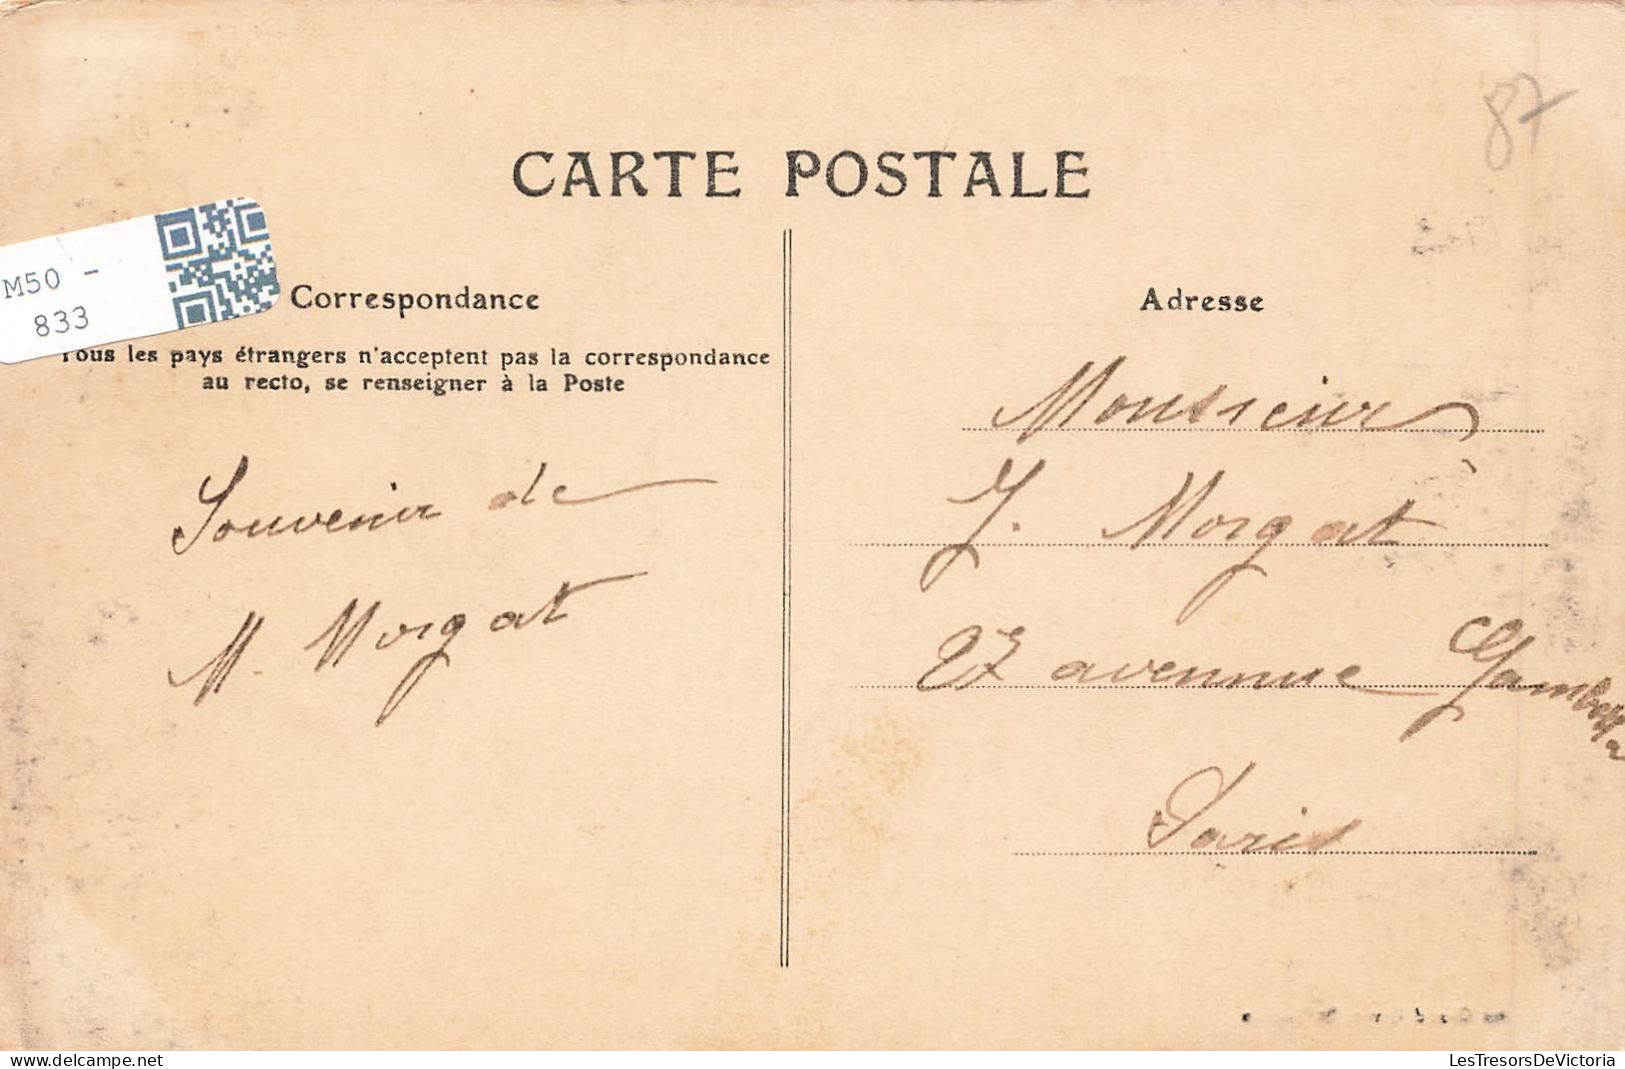 87
CARTE POSTALE
M50 -
833
Correspondance
Tous les pays étrangers n'acceptent pas la correspondance
au recto, se renseigner à la Poste
Souvenir de
M. Morgat
Adresse
Monsieur
J. Morgat
27 avennue Gambetta
Paris
LesTresorsDeVictoria